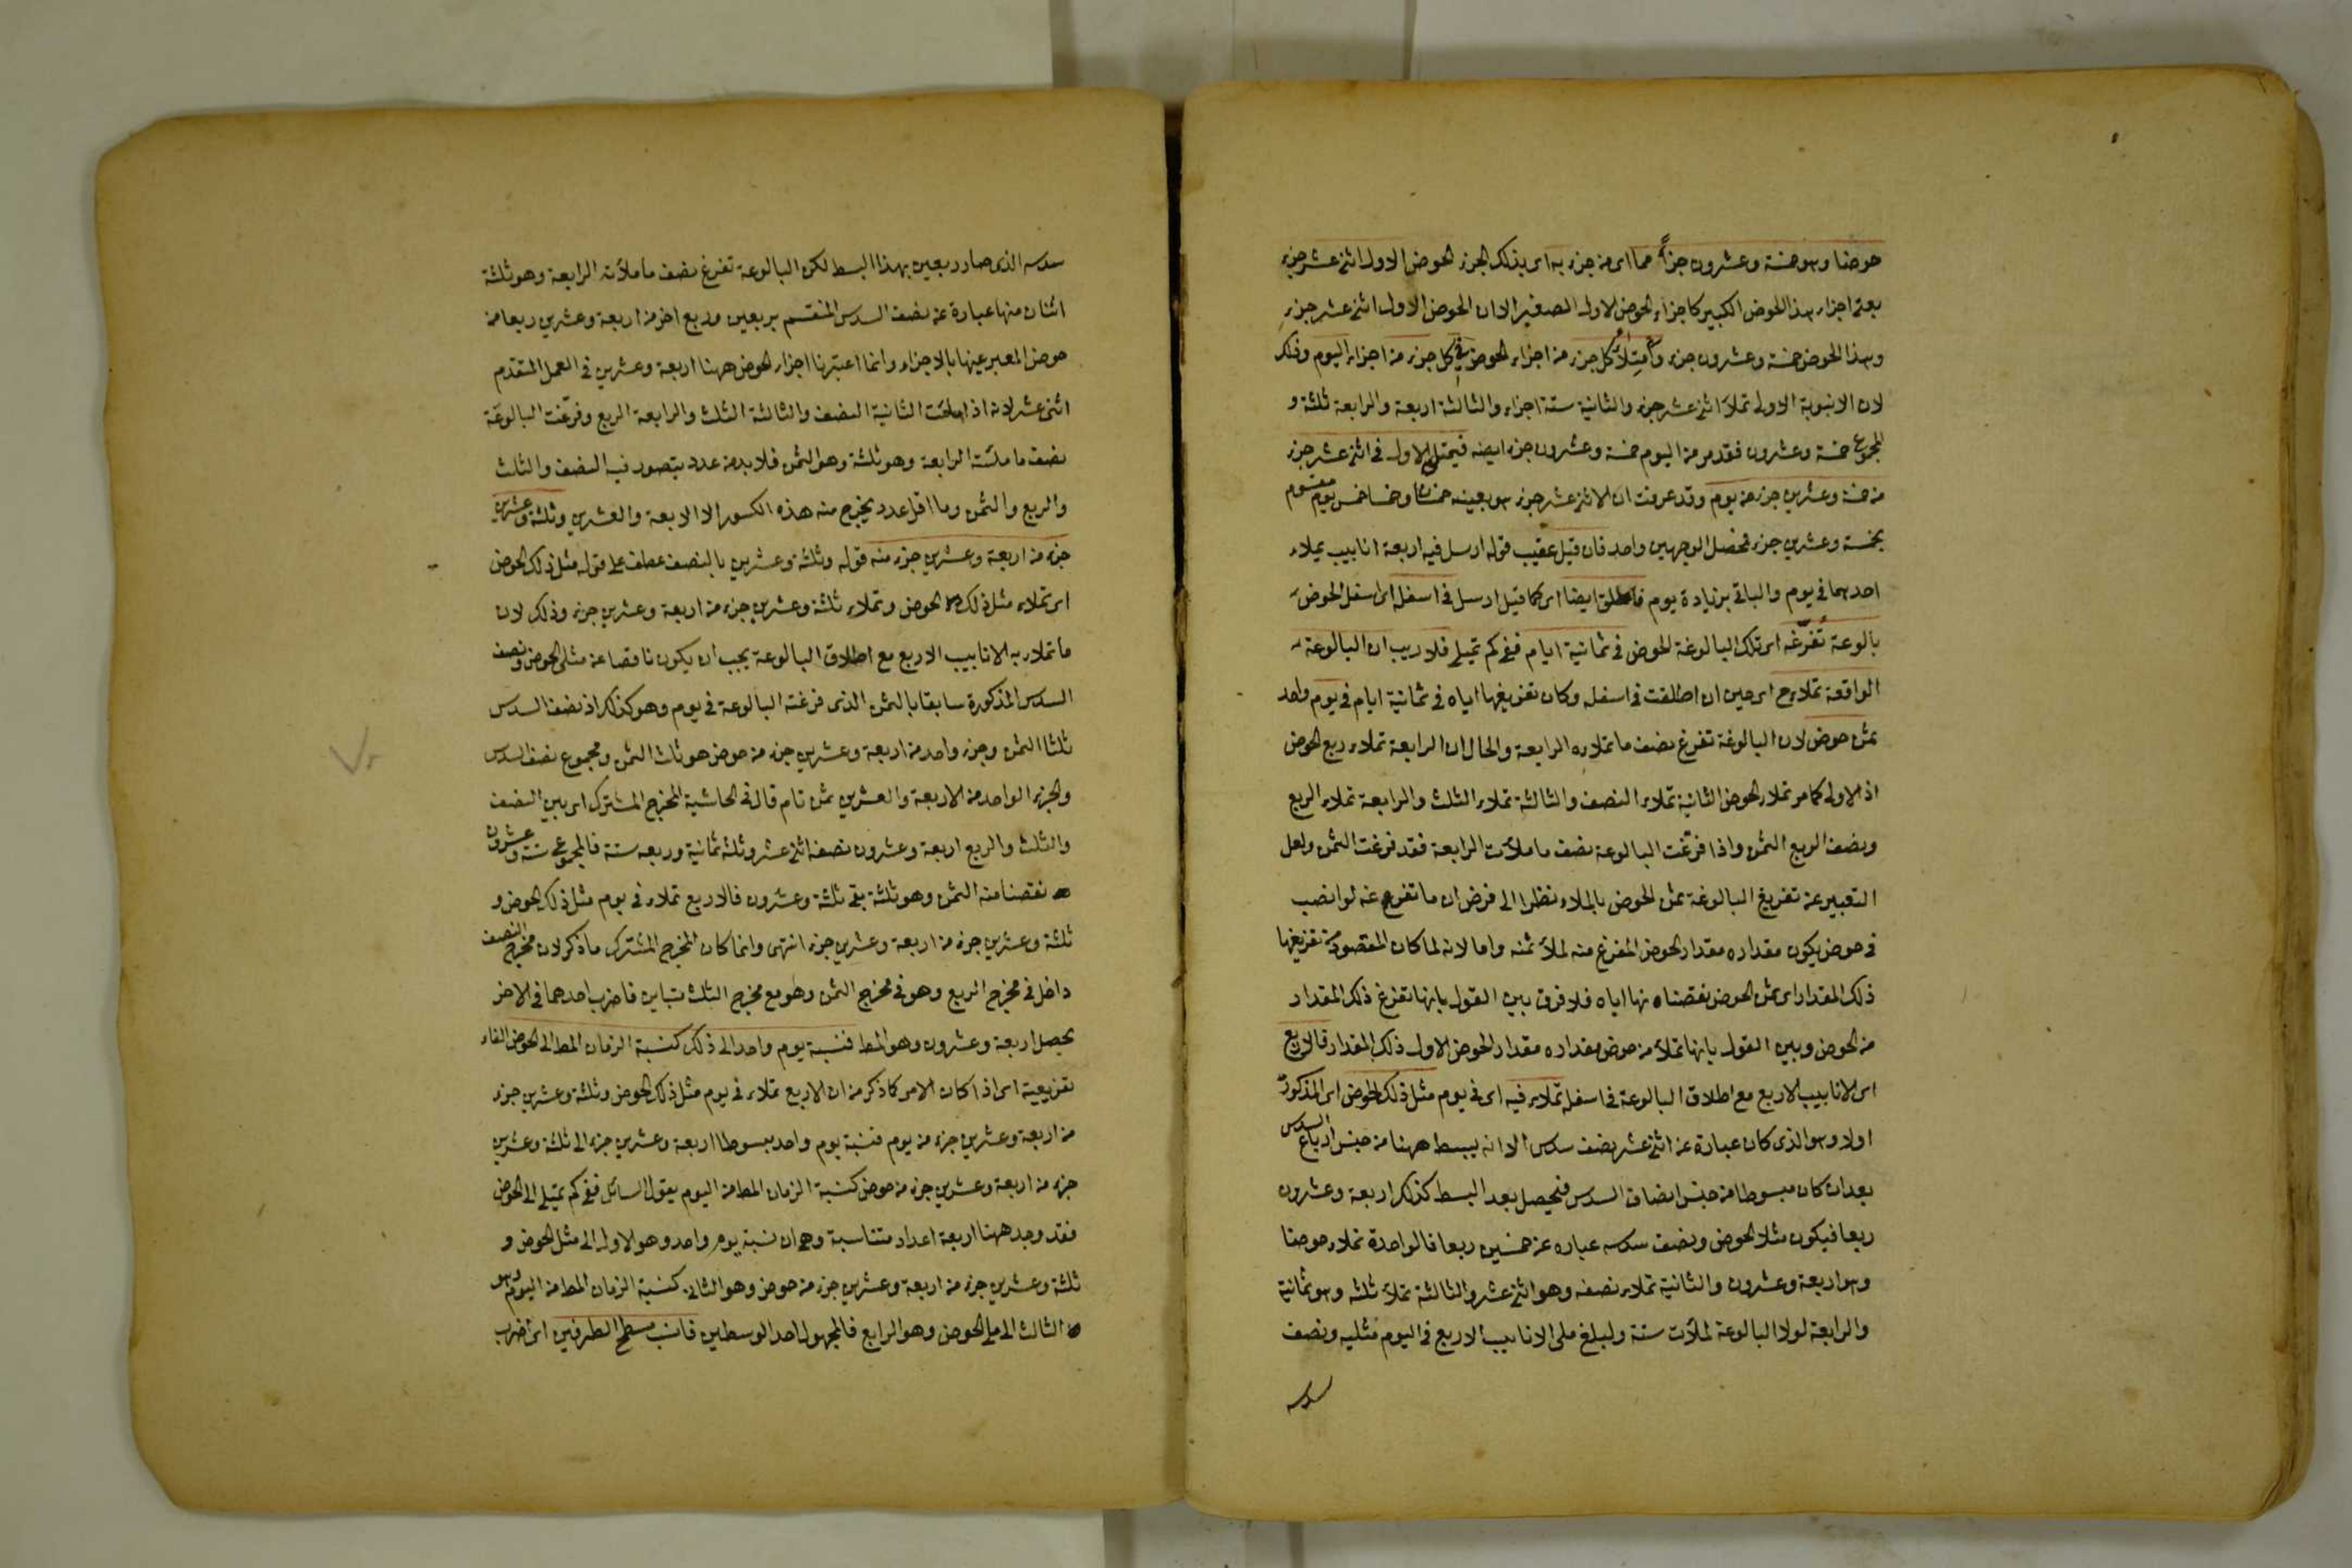 حوضا وهو خمسة وعشرون جزأ مما اى من جزء به اى بذلك الجزء الحوض الاول اثنى عشر جزء
يعنى اجزاء هذا الحوض الكبير كاجزاء الحوض الاول الصغير الا ان الحوض الاول اثنى عشر جزء
وهذا الحوض خمسة وعشرون جزء وامتلأ كل جزء من اجزاء الحوض فى كل جزء من اجزاء اليوم وذلك
لان الانبوبة الاولى تملأ اثنى عشر جزء والثانية ستة اجزاء والثالثة اربعة والرابعة ثلثة و
المجموع خمسة وعشرون فقد مر من اليوم خمسة وعشرون جزء ايضه فيمتلى الاول فى اثنى عشر جزء
من خمسة وعشرين جزء من يوم وقد عرفت ان الاثنى عشر جزء هو بعينه خمسان وخمسا خمس يوم مقسوم
بخمسة وعشرين جزء فحصل الوجهين واحد فان قيل عقيب قوله ارسل فيه اربعة انابيب يملاء
احدهما فى يوم والباقى بزيادة يوم فاطلق ايضا اى كما قيل ارسل فى اسفله اى اسفل الحوض
بالوعة تفرغه اى تلك البالوغة الحوض فى ثمانية ايام ففى كم تمتلى فلا ريب ان البالوعة
الواقعة تملاء ح اى حين ان اطلقت فى اسفله وكان تفريغها اياه فى ثمانية ايام فى يوم واحد
ثمن حوض لان البالوغة تفرغ نصف ما تملاءه الرابعة والحال ان الرابعة تملاء ربع الحوض
اذ الاولى كما مر تملاء الحوض الثانية تملاء النصف والثالثة تملاء الثلث والرابعة تملاء الربع
ونصف الربع الثمن واذا فرّغت البالوعة نصف ما ملأت الرابعة فقد فرغت الثمن ولعل
التعبير عن تفريغ البالوغة ثمن الحوض بالملاء نظرا الى فرض ان ما تفرغ عنه لو انصب
فى حوض يكون مقداره مقدار الحوض المفرغ منه لملأ ثمنه واما لانه لما كان المقصود من تفريغها
ذلك المقدار اى ثمن الحوض نقصناه نها اياه فلا فرق بين القول بانها تفرغ ذلك المقدار
من الحوض وبين القول بانها تملأ من حوض مقداره مقدار الحوض الاول ذلك المقدار فالاربع
اى الانابيب الاربع مع اطلاق البالوعة فى اسفله تملاء فيه اى فى يوم مثل ذلك الحوض اى المذكور
اولا وهو الذى كان عبارة عن اثنى عشر نصف سدس الا انه يبسط ههنا من جنس ارباع السدس
بعد ان كان مبسوطا من جنس انصاف السدس فيحصل بعد البسط كذلك اربعة وعشرون
ربعا فيكون مثلا الحوض ونصف سدسه عباره عن خمسين ربعا فالواحدة تملاء حوضا
وهو اربعة وعشرون والثانية تملاء نصفه وهو اثنى عشر والثالثة تملأ ثلثه وهو ثمانية
والرابعة لولا البالوعة لملأت ستة ولبلغ ملى الانابيب الاربع فى اليوم مثليه ونصف
سدسه
سدسه الذى صار ربعين بهذا البسط لكن البالوعة تفرغ نصف ما ملأته الرابعة وهو ثلثة
اثنان منها عبارة عن نصف السدس المنقسم بربعين وربع اخر من اربعة وعشرين ربعا من
حوض المعبر عينها بالاجزاء وانما اعتبرنا اجزاء الحوض ههنا اربعة وعشرين فى العمل المتقدم
اثنى عشر لانه اذا ملئت الثانية النصف والثالثة الثلث والرابعة الربع وفرّغت البالوعة
نصف ما ملئته الرابعة وهو ثلثة وهو الثمن فلا بد من عدد يتصور فيه النصف والثلث
والربع والثمن وما اقل عدد يخرج منه هذه الكسور الا الاربعة والعشرين وثلثة وعشرين
جزء من اربعة وعشرين جزء منه قوله وثلثة وعشرين بالنصف عطف على قوله مثل ذلك الحوض
اى تملاء مثل ذلك الحوض وتملاء ثلثة وعشرين جزء من اربعة وعشرين جزء وذلك لان
ما تملاء به الانابيب الاربع مع اطلاق البالوعة يجب ان يكون ناقصا عن مثلى الحوض ونصف
السدس المذكورة سابقا بالثمن الذى فرغته البالوعة فى يوم وهو كذلك اذ نصف السدس
ثلثا الثمن وجزء واحد من اربعة وعشرين جزء من حوض هو ثلث الثمن ومجموع نصف السدس
والجزء الواحد من الاربعة والعشرين ثمن تام قال فى الحاشية المخرج المشترك اى بين النصف
والثلث والربع اربعة وعشرون نصفه اثنى عشر وثلثه ثمانية وربعه ستة فالمجموع ستة وعشرون
نقصنا منه الثمن وهو ثلثة بقى ثلثة وعشرون فالاربع تملاء فى يوم مثل ذلك الحوض و
ثلثة وعشرين جزء من اربعة وعشرين جزء انتهى وانما كان المخرج المشترك ما ذكر لان مخرج النصف
داخل فى مخرج الربع وهو فى مخرج الثمن وهو مع مخرج الثلث متباين فاضرب احدهما فى الاخر
يحصل اربعة وعشرون وهو المط فنسبة يوم واحد الى ذلك كنسبة الزمان المط الى الحوض الفاء
تفريعية اى اذا كان الامر كما ذكر من ان الاربع تملاء فى يوم مثل ذلك الحوض وثلثة وعشرين جزء
من اربعة وعشرين جزء من يوم فنسبة يوم واحد مبسوطا اربعة وعشرين جزء الى ثلثة وعشرين
جزء من اربعة وعشرين جزء من حوض كنسبة الزمان المط من اليوم بقول السائل ففى كم تمتلى الى الحوض
فقد وجد ههنا اربعة اعداد متناسبة وهى ان نسبة يوم واحد وهو الاول الى مثل الحوض و
ثلثة وعشرين جزء من اربعة وعشرين جزء من حوض وهو الثانى كنسبة الزمان المط من اليوم وهو
الثالث الى ملى الحوض وهو الرابع فالمجهول احد الوسطين فانسب مسطح الطرفين اى اضرب